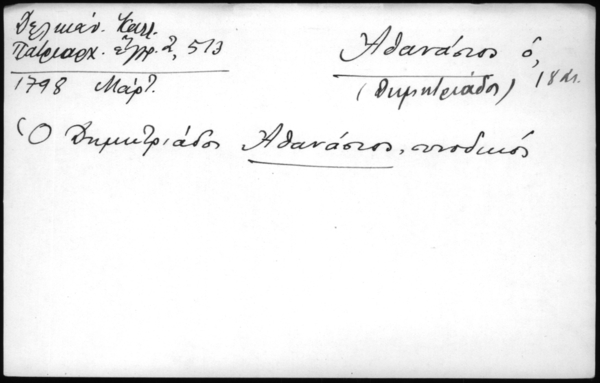 Δελικάν. Καλλ.
Πατριαρχ. ἔγγρ. 2, 513
1798 Μάρτ.
Ἀθανάσιος ὁ,
(Δημητριάδος) 18 αι.
Ὁ Δημητριάδος Ἀθανάσιος, συνοδικός